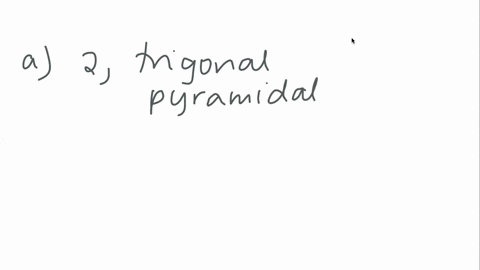 a) 2, trigonal
pyramidal